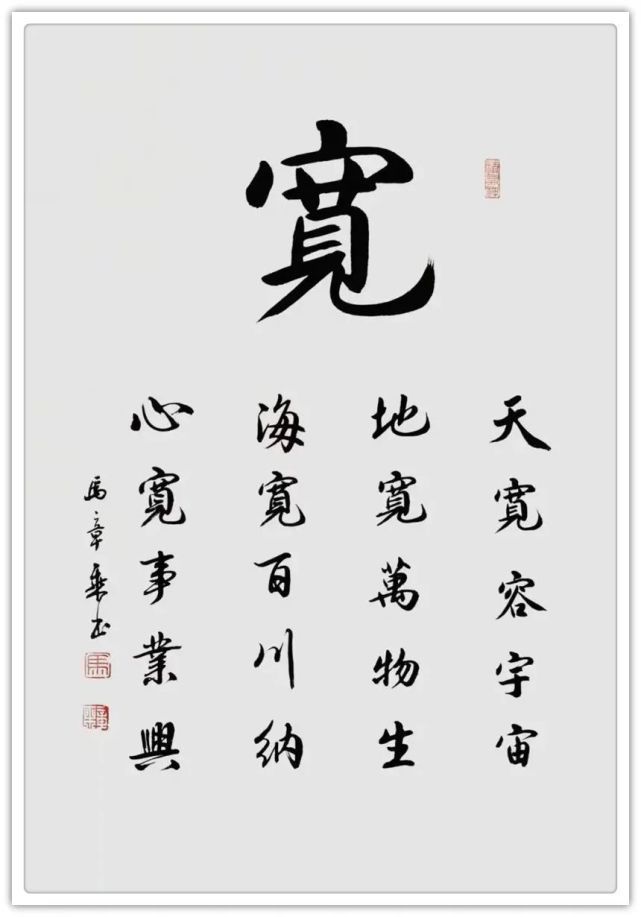 寬
天寬容宇宙
地寬萬物生
海寬百川納
心寬事業興
馬章乘書